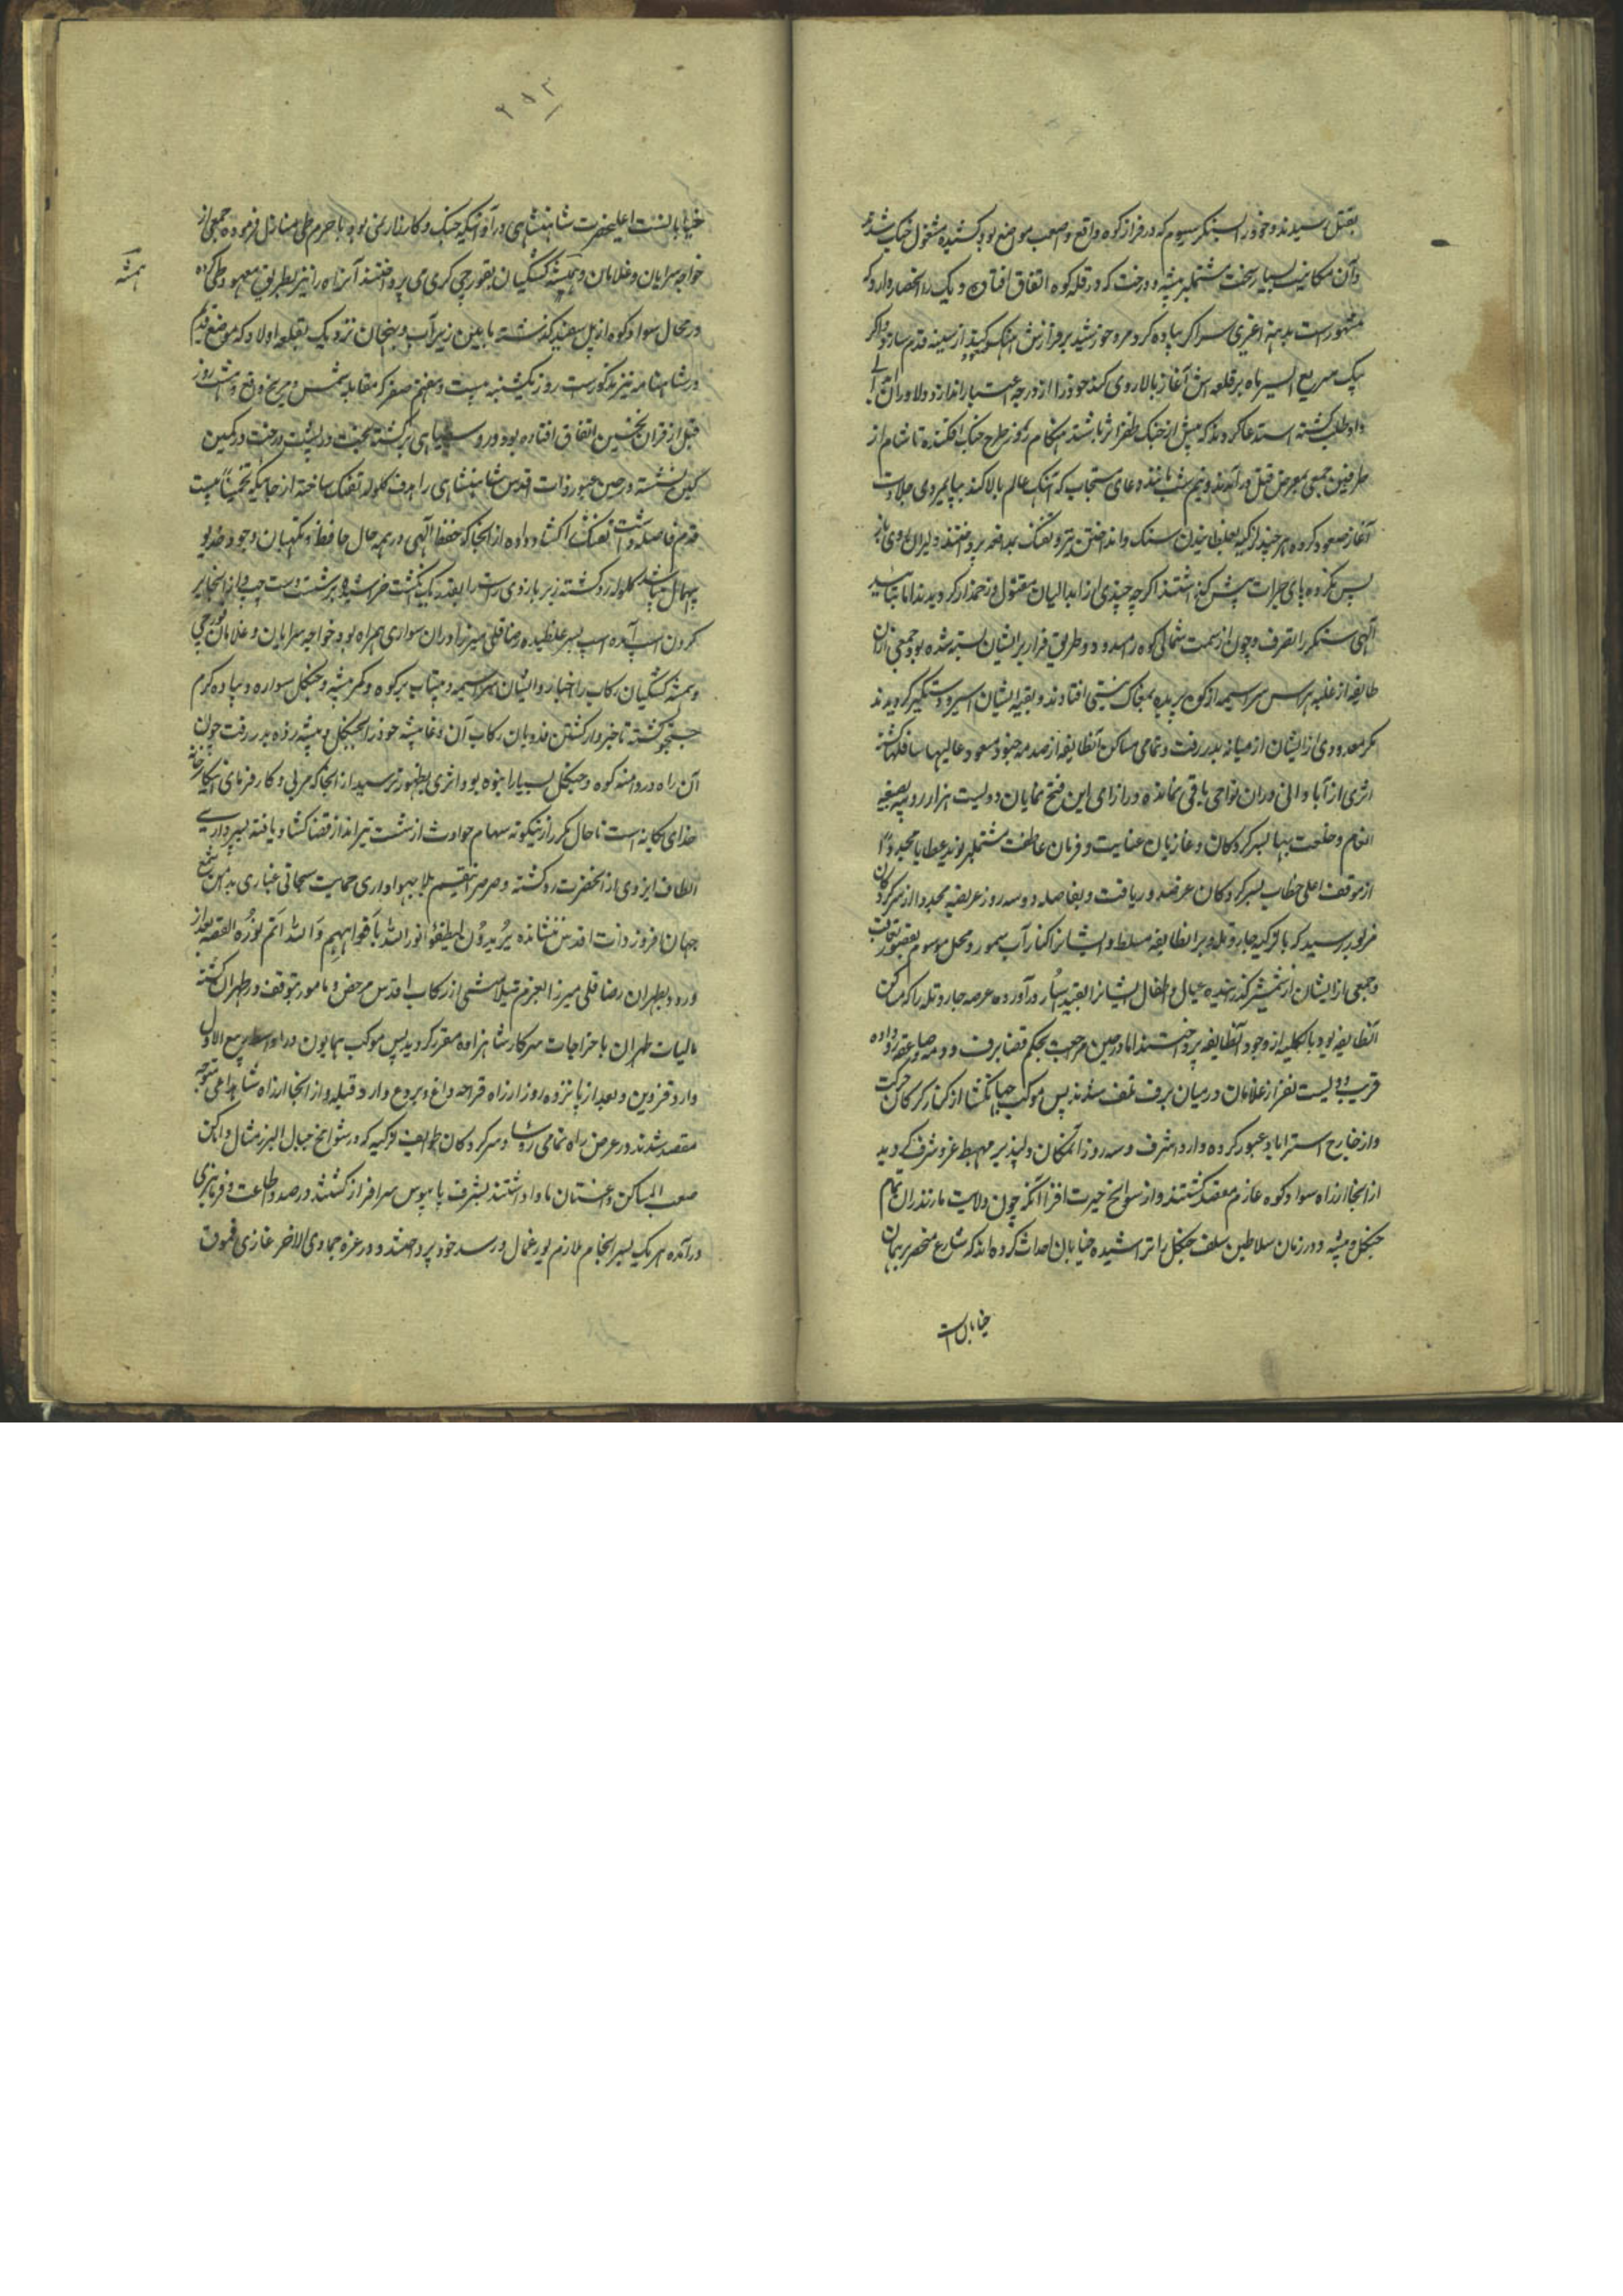 بقتل رسیدند و خود را بسنگر سیوم که در فراز کوه واقع و اصعب مواضع بود کشیده مشغول جنگ شدند
و آن مکانیست بسیار سخت مشتمل بر بیشه و درخت که در قله کوه اتفاق افتاده و یک راه انحصار دارد که
مشهور است
پیک سریع السیر ماه بر قلعه اش آغاز بالاروی کند خود را از درجه اعتبار اندازد دلاوران
داوطلب گشته استدعا کردند که پیش از جنگ ظفر اثر باشند هنگام روز طرح جنگ افکنده تا شام از
طرفین جمعی بمعرض قتل درآمدند و نیم شب مانند دعای مستجاب که آهنگ عالم بالا کند بپایمردی جلادت
آغاز صعود کرده هر چند لزگیه بغلطانیدن سنگ و انداختن تیر و تفنگ بمدافعه پرداختند دلیران روی باز
پس نکرده پای جرات پیش گذاشتند اگر چه چندی از ابدالیان مقتول و زخمدار گردیدند اما بتایید
الهی سنگر را بتصرف و چون از سمت شمالی کوه راه مسدود و طریق فرار بر ایشان بسته شده بود جمعی از آن
طایفه از غلبه هراس سراسیمه از کوه پریده بمغاک نیستی افتادند و بقیه ایشان اسیر و دستگیر گردیدند
مگر معدودی از ایشان از میانه بدر رفت و تمامی مساکن آنطایفه از صدمه جنود مسعود عالیها سافلها گشته
اثری از آبادانی در آن نواحی باقی نمانده در ازای این فتح نمایان دویست هزار روپیه بصیغه
انعام و خلعت بیها بسرکردگان و غازیان عنایت و فرمان عاطفت مشتمل بر نوید عطایای مجدد
از موقف اعلی خطاب بسرکردگان عز صدور یافت و بفاصله دو سه روز عریضه مجدد از سرکردگان
مزبور رسید که باقی لزگیه جار و تله بر آنطایفه مسلط و ایشان را کنار آب سمور و محل موسوم بقصور تعاقب
و جمعی از ایشان از شمشیر گذرانیده عیال و اطفال ایشانرا بقید اسار درآورده عرصه جار و تله را که مسکن
آنطایفه بود بالکلیه از وجود آنطایفه پرداختند اما در حین مراجعت بحکم قضا برف و دمه
قریب دویست نفر از غلامان در میان برف تلف شدند پس موکب جهانگشا از کنار گرگان حرکت
و از خارج استراباد عبور کرده وارد اشرف و سه روز آنمکان دلپذیر مهبط عز و شرف گردید
از آنجا از راه سوادکوه عازم مقصد گشتند و از سوانح حیرت افزا آنکه چون ولایت مازندران تمام
جنگل و بیشه و در زمان سلاطین سلف جنگل را تراشیده خیابان احداث کرده اند که شارع منحصر بهمان
خیابان است
۲۱۳
خیابانست اعلیحضرت شاهنشاهی در آنوقتیکه جنگ و کارزار نمی بود با حرم طی منازل فرموده جمعی از
خواجه سرایان و غلامان و همیشه کشیکیان بقورچی گری می پرداختند آنراه را نیز بطریق معهود طی کرده
همیشه
در محال سوادکوه از پل سفید گذشته مابین زیرآب و بهنجان نزدیک بقلعه اولاد که موضع قدیم
در شاهنامه نیز مذکور است روز یکشنبه بیست و هفتم صفر که مقابله شمس و مریخ واقع و هشت روز
قبل از قران نحسین اتفاق افتاده بود روسیاهی برگشته بخت در پشت درخت در کمین
کین نشسته در حین عبور ذات اقدس شاهنشاهی را هدف گلوله تفنگ ساخته از جائیکه تخمیناً بیست
قدم فاصله داشت تفنگ را گشاد داده از آنجا که حفظ الهی در همه حال حافظ و نگهبان وجود خدیو
بیهمال میباشد گلوله رد گشته زیر بازوی راست را بقدر یک انگشت خراشیده بر شست دست چپ
گردن اسب آمده اسب بسر غلطیده رضاقلی میرزا در آن سواری همراه بود خواجه سرایان و غلامان قورچی
و همیشه کشیکیان رکاب را اخبار و ایشان سراسیمه و بیتاب بر کوه و کمر و بیشه و جنگل سواره و پیاده گرم
جستجو گشته تا خبردار گشتن فدویان رکاب آن دغا پیشه خود را بجنگل و بیشه زده بدر رفت چون
آن راه در دامنه کوه و جنگل بسیار انبوه بود اثری بظهور نرسید از آنجا که مربی و کارفرمای این کارخانه
خدای یگانه است تا حال مکرر از نیکونه سهام حوادث از شست تیرانداز قضا گشاد یافته بسپرداری
الطاف ایزدی از آنحضرت رد گشته و صرصر
جهان افروز ذات اقدس ننشانده یریدون لیطفؤا نورالله بافواههم والله متم نوره القصه بعد از
ورود بطهران رضاقلی میرزا از رکاب اقدس مرخص و مامور بتوقف در طهران گشته
مالیات طهران باخراجات سرکار شاهزاده مقرر گردید پس موکب همایون در اواسط ربیع الاول
وارد قزوین و بعد از پانزده روز از راه قراجه داغ و بردع وارد قبله و از آنجا از راه شاهداغی متوجه
مقصد شدند در عرض راه تمامی رؤسا و سرکردگان طوایف لزگیه که در شوامخ جبال البرز مثال و اماکن
صعب المسالک داغستان ماوا داشتند بشرف پابوس سرافراز گشتند در صدد اطاعت و فرمانبری
درآمده هر یک بسرانجام ملازم یورغمال درسد خود پرداختند و در غره جمادی الاخر غازی قموق